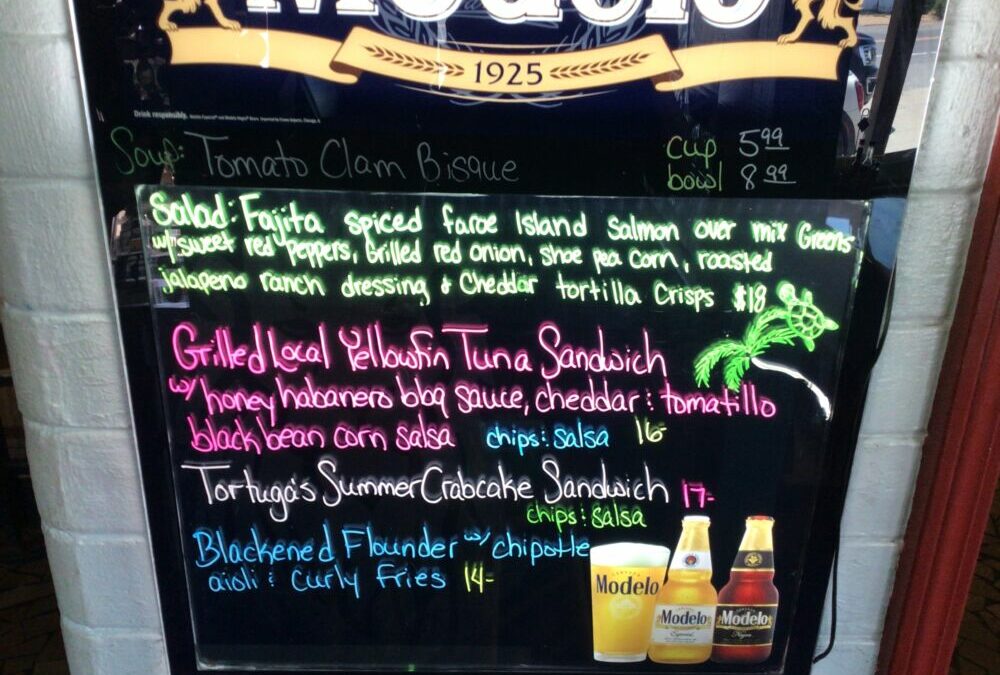 Modelo
1925
Drink responsibly.
Soup: Tomato Clam Bisque cup 5.99
bowl 8.99
Salad: Fajita spiced faroe Island Salmon over mix Greens
w/ sweet red peppers, Grilled red onion, shoe pea corn, roasted
jalapeno ranch dressing & Cheddar tortilla Crisps $18
Grilled Local Yellowfin Tuna Sandwich
w/ honey habanero bbq sauce, cheddar & tomatillo
black bean corn salsa chips & salsa 16-
Tortuga's Summer Crabcake Sandwich 17-
chips & salsa
Blackened Flounder w/ chipotle
aioli & Curly Fries 14-
Modelo
Modelo
Especial
Modelo
Negra